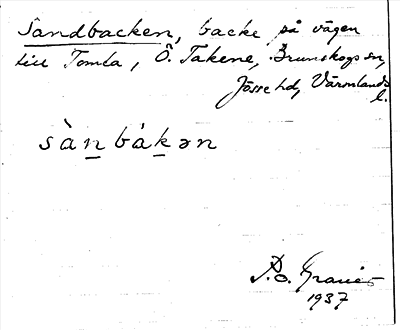 Sandbacken, backe på vägen
till Tomta, Ö. Takene, Brunskogs sn,
Jösse hd, Värmlands
l.
sànbákən
1937